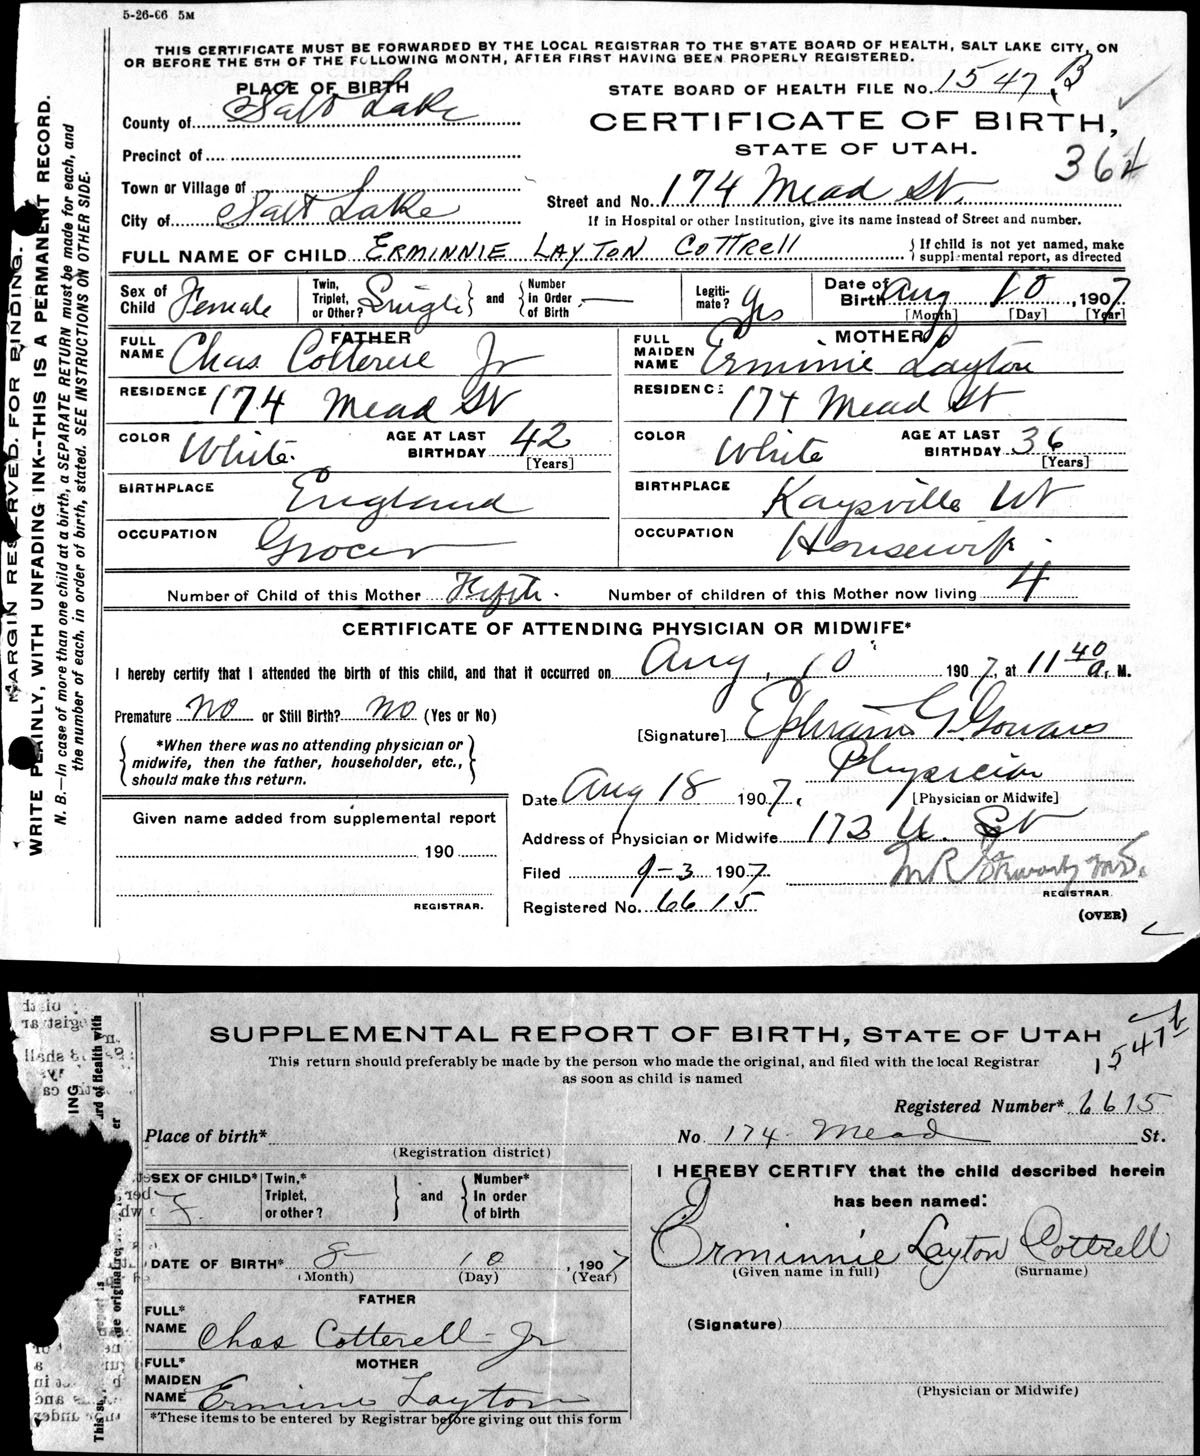 5-26-06 5M
THIS CERTIFICATE MUST BE FORWARDED BY THE LOCAL REGISTRAR TO THE STATE BOARD OF HEALTH, SALT LAKE CITY, ON
OR BEFORE THE 5TH OF THE FOLLOWING MONTH, AFTER FIRST HAVING BEEN PROPERLY REGISTERED.
PLACE OF BIRTH
STATE BOARD OF HEALTH FILE No. 1547 B
County of Salt Lake
CERTIFICATE OF BIRTH,
STATE OF UTAH.
Precinct of
Town or Village of
Street and No. 174 Mead St.
City of Salt Lake
If in Hospital or other Institution, give its name instead of Street and number.
FULL NAME OF CHILD ERMINNIE LAYTON COTTRELL
{ If child is not yet named, make supplemental report, as directed
Sex of Child Female
Twin, Triplet, or Other? Single } and { Number in Order of Birth —
Legitimate? yes
Date of Birth Aug 10, 1907
[Month] [Day] [Year]
FATHER
FULL NAME Chas Cotterell Jr
RESIDENCE 174 Mead St
COLOR White. AGE AT LAST BIRTHDAY 42 [Years]
BIRTHPLACE England
OCCUPATION Grocer
MOTHER
FULL MAIDEN NAME Erminie Layton
RESIDENCE 174 Mead St
COLOR White AGE AT LAST BIRTHDAY 36 [Years]
BIRTHPLACE Kaysville Ut
OCCUPATION Housewife
Number of Child of this Mother Fifth. Number of children of this Mother now living 4
CERTIFICATE OF ATTENDING PHYSICIAN OR MIDWIFE*
I hereby certify that I attended the birth of this child, and that it occurred on Aug, 10 1907, at 11 40 a. M.
Premature No or Still Birth? No (Yes or No)
[Signature] Ephraim G. Gowans
{ *When there was no attending physician or
midwife, then the father, householder, etc.,
should make this return. }
Physician
[Physician or Midwife]
Date Aug 18 1907.
Address of Physician or Midwife 173 U. St
Given name added from supplemental report
190
REGISTRAR.
Filed 9-3 1907
REGISTRAR.
Registered No. 6615
(OVER)
MARGIN RESERVED FOR BINDING.
WRITE PLAINLY, WITH UNFADING INK--THIS IS A PERMANENT RECORD.
N. B.—In case of more than one child at a birth, a SEPARATE RETURN must be made for each, and
the number of each, in order of birth, stated. SEE INSTRUCTIONS ON OTHER SIDE.
SUPPLEMENTAL REPORT OF BIRTH, STATE OF UTAH
This return should preferably be made by the person who made the original, and filed with the local Registrar
as soon as child is named
Registered Number* 6615
Place of birth*
(Registration district)
No. 174 Mead St.
SEX OF CHILD* F.
Twin,* Triplet, or other? } and { Number* In order of birth
I HEREBY CERTIFY that the child described herein
has been named:
Erminnie Layton Cottrell
(Given name in full) (Surname)
DATE OF BIRTH* 8 10, 1907
(Month) (Day) (Year)
FATHER
FULL* NAME Chas Cotterell Jr
(Signature)
MOTHER
FULL* MAIDEN NAME Ermine Layton
(Physician or Midwife)
*These items to be entered by Registrar before giving out this form